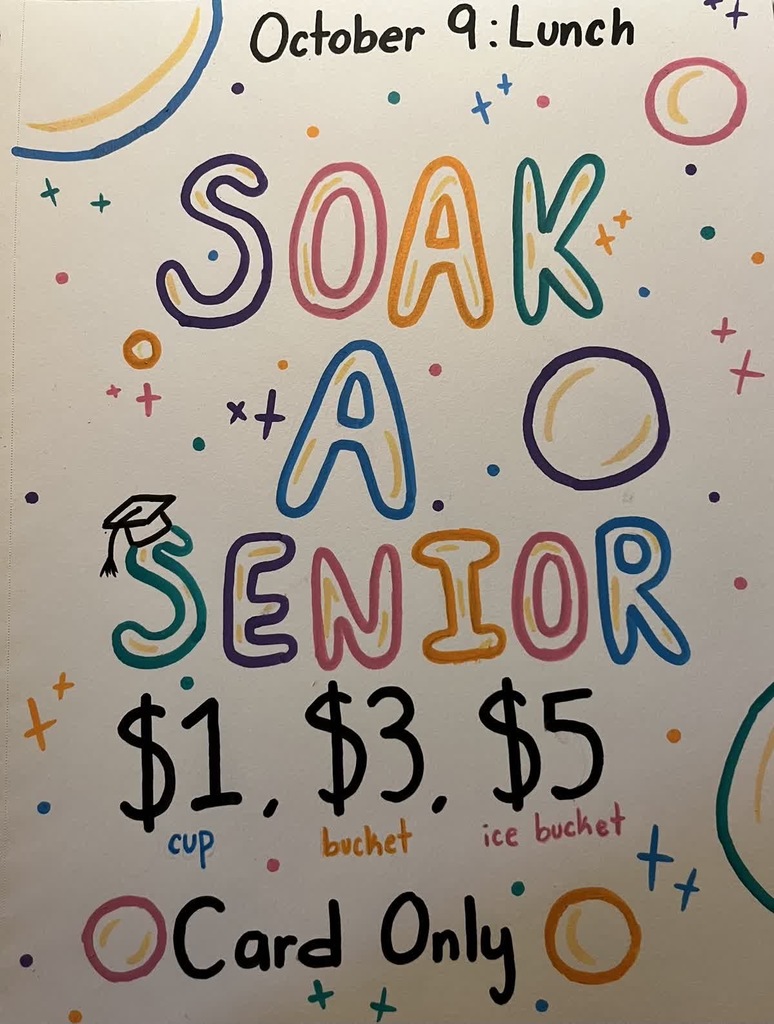 October 9: Lunch
SOAK
A
SENIOR
$1, $3, $5
cup bucket ice bucket
Card Only